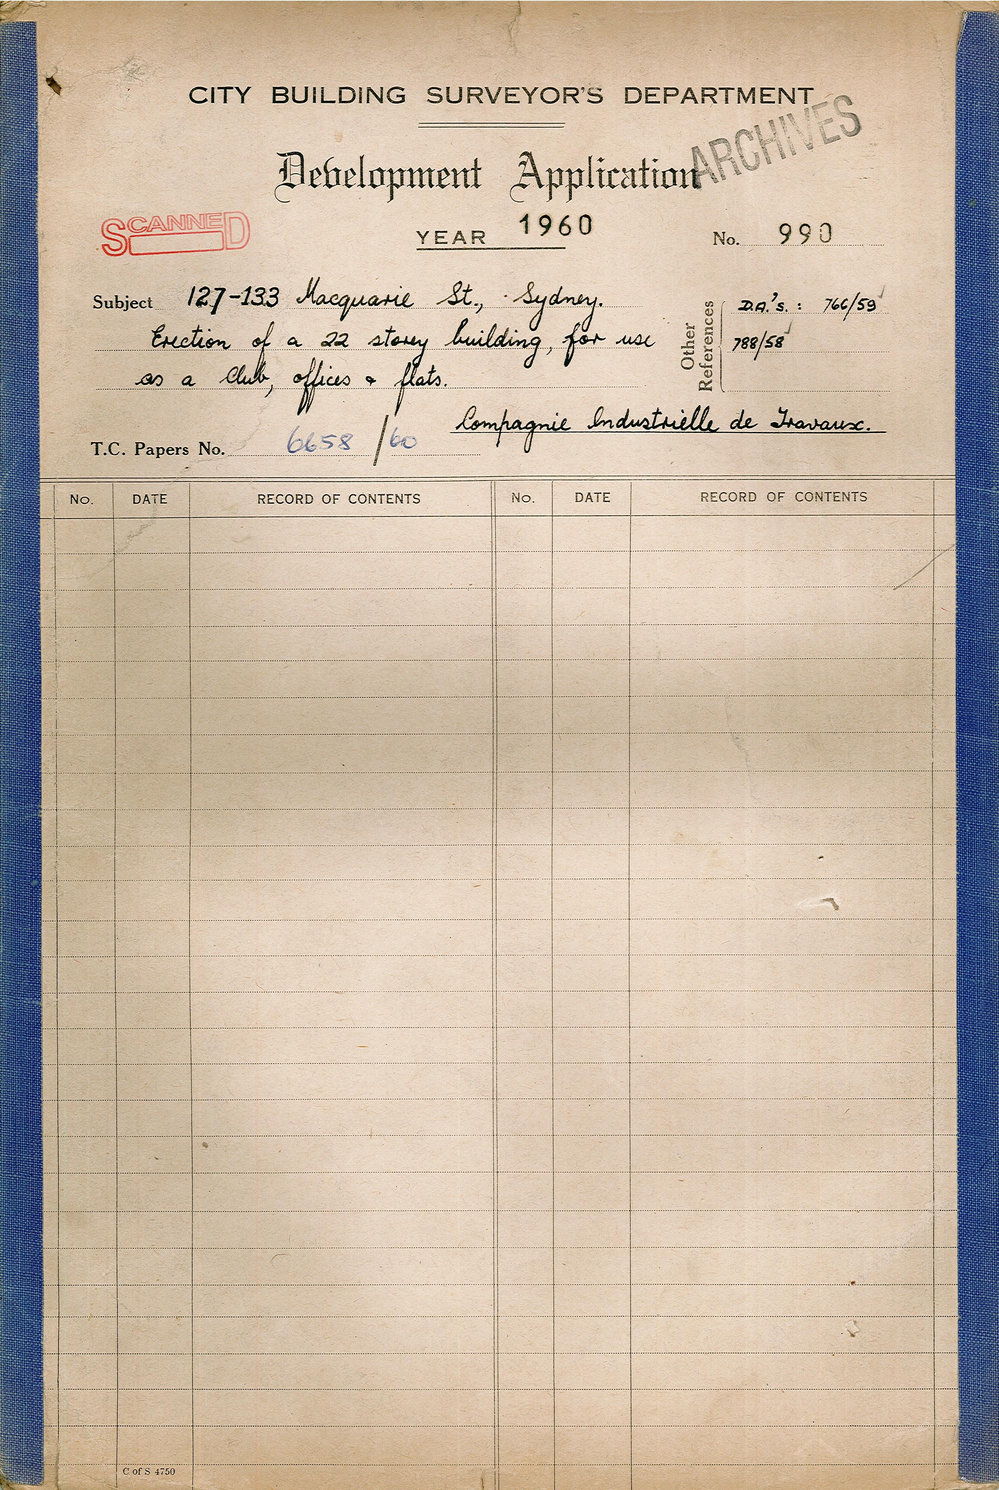 CITY BUILDING SURVEYOR'S DEPARTMENT
ARCHIVES
Development Application
SCANNED
YEAR 1960
No. 990
Subject 127-133 Macquarie St., Sydney.
Erection of a 22 storey building, for use
as a Club, offices & flats.
Other References
D.A.'s. : 766/59
788/58
Compagnie Industrielle de Travaux.
T.C. Papers No. 6658/60
No. DATE RECORD OF CONTENTS No. DATE RECORD OF CONTENTS
C of S 4750